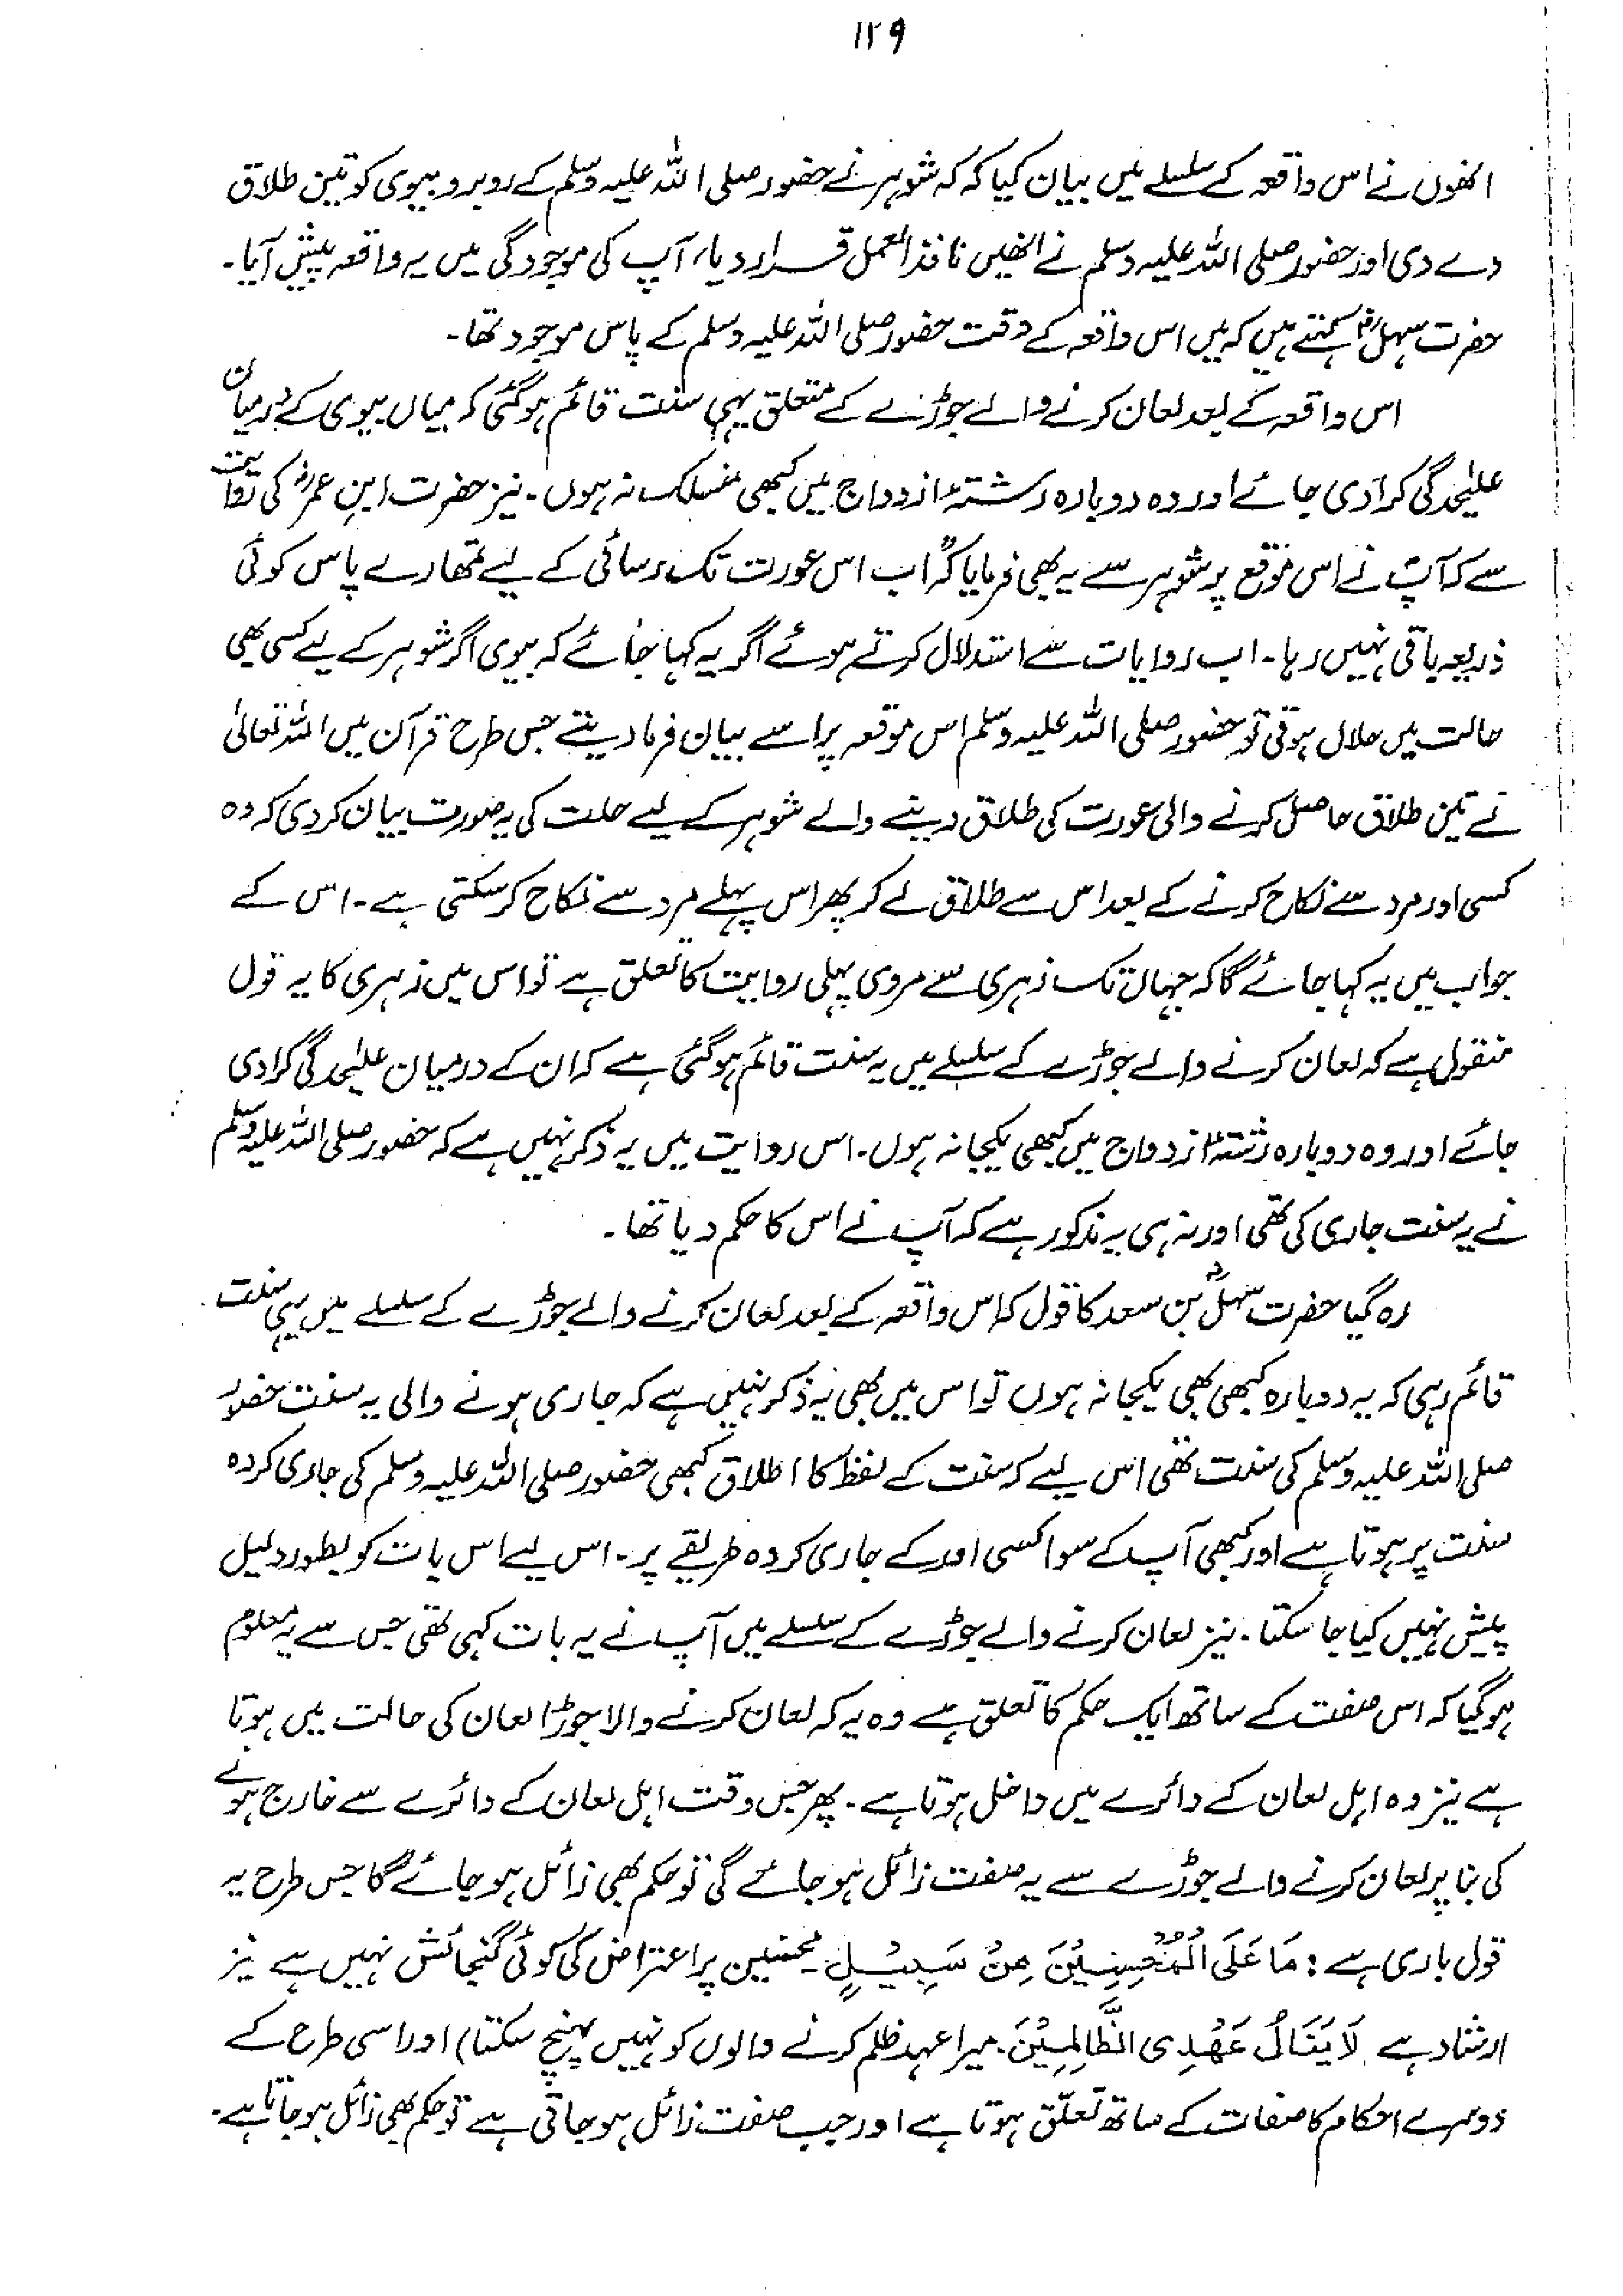 ۱۲۹
انھوں نے اس واقعہ کے سلسلے میں بیان کیا کہ کہ شوہر نے حضور صلی اللہ علیہ وسلم کے روبرو بیوی کو تین طلاق
دے دی اور حضور صلی اللہ علیہ وسلم نے انھیں نافذ العمل قرار دیا، آپ کی موجودگی میں یہ واقعہ پیش آیا۔
حضرت سہلؓ کہتے ہیں کہ میں اس واقعہ کے وقت حضور صلی اللہ علیہ وسلم کے پاس موجود تھا۔
اس واقعہ کے بعد لعان کرنے والے جوڑے کے متعلق یہی سنت قائم ہوگئی کہ میاں بیوی کے درمیان
علیٰحدگی کرادی جائے اور وہ دوبارہ رشتۂ ازدواج میں کبھی منسلک نہ ہوں۔ نیز حضرت ابن عمرؓ کی روایت
سے کہ آپؐ نے اس موقع پر شوہر سے یہ بھی فرمایا کہ "اب اس عورت تک رسائی کے لیے تمھارے پاس کوئی
ذریعہ باقی نہیں رہا۔ اب روایات سے استدلال کرتے ہوئے اگر یہ کہا جائے کہ بیوی اگر شوہر کے لیے کسی بھی
حالت میں حلال ہوتی تو حضور صلی اللہ علیہ وسلم اس موقعہ پر اسے بیان فرما دیتے جس طرح قرآن میں اللہ تعالیٰ
نے تین طلاق حاصل کرنے والی عورت کی طلاق دینے والے شوہر کے لیے حلت کی یہ صورت بیان کر دی کہ وہ
کسی اور مرد سے نکاح کرنے کے بعد اس سے طلاق لے کر پھر اس پہلے مرد سے نکاح کر سکتی ہے۔ اس کے
جواب میں یہ کہا جائے گا کہ جہاں تک زہری سے مروی پہلی روایت کا تعلق ہے تو اس میں زہری کا یہ قول
منقول ہے کہ لعان کرنے والے جوڑے کے سلسلے میں یہ سنت قائم ہوگئی ہے کہ ان کے درمیان علیٰحدگی کرادی
جائے اور وہ دوبارہ رشتۂ ازدواج میں کبھی یکجا نہ ہوں۔ اس روایت میں یہ ذکر نہیں ہے کہ حضور صلی اللہ علیہ وسلم
نے یہ سنت جاری کی تھی اور نہ ہی یہ مذکور ہے کہ آپ نے اس کا حکم دیا تھا۔
رہ گیا حضرت سہلؓ بن سعد کا قول کہ اس واقعہ کے بعد لعان کرنے والے جوڑے کے سلسلے میں یہی سنت
قائم رہی کہ یہ دوبارہ کبھی بھی یکجا نہ ہوں تو اس میں بھی یہ ذکر نہیں ہے کہ جاری ہونے والی یہ سنت حضور
صلی اللہ علیہ وسلم کی سنت تھی اس لیے کہ سنت کے لفظ کا اطلاق کبھی حضور صلی اللہ علیہ وسلم کی جاری کردہ
سنت پر ہوتا ہے اور کبھی آپ کے سوا کسی اور کے جاری کردہ طریقے پر۔ اس لیے اس بات کو بطور دلیل
پیش نہیں کیا جا سکتا۔ نیز لعان کرنے والے جوڑے کے سلسلے میں آپ نے یہ بات کہی تھی جس سے یہ معلوم
ہوگیا کہ اس صفت کے ساتھ ایک حکم کا تعلق ہے وہ یہ کہ لعان کرنے والا جوڑا لعان کی حالت میں ہوتا
ہے نیز وہ اہل لعان کے دائرے میں داخل ہوتا ہے۔ پھر جس وقت اہل لعان کے دائرے سے خارج ہونے
کی بنا پر لعان کرنے والے جوڑے سے یہ صفت زائل ہو جائے گی تو حکم بھی زائل ہو جائے گا جس طرح یہ
قول باری ہے : مَا عَلَى الْمُحْسِنِيْنَ مِنْ سَبِيْلٍ۔ محسنین پر اعتراض کی کوئی گنجائش نہیں ہے نیز
ارشاد ہے لَا يَنَالُ عَهْدِى الظَّالِمِيْنَ۔ میرا عہد ظلم کرنے والوں کو نہیں پہنچ سکتا) اور اسی طرح کے
دوسرے احکام کا صفات کے ساتھ تعلّق ہوتا ہے اور جب صفت زائل ہو جاتی ہے تو حکم بھی زائل ہو جاتا ہے۔